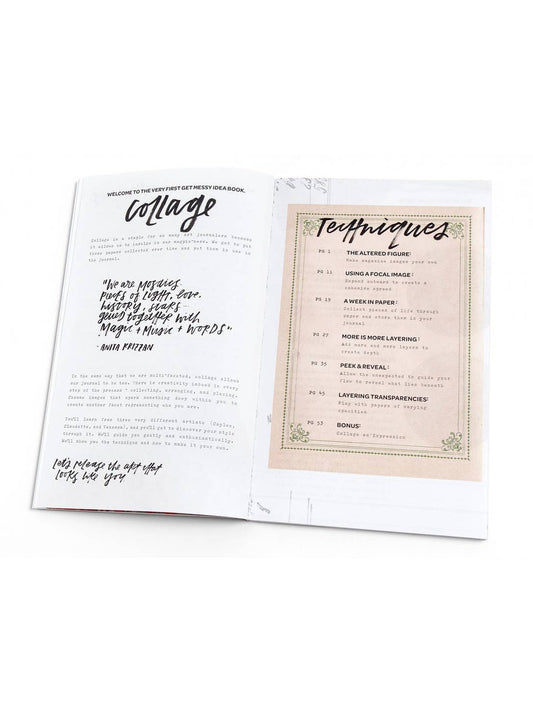 WELCOME TO THE VERY FIRST GET MESSY IDEA BOOK.
collage
Collage is a staple for so many art journalers because
it allows us to indulge in our magpie'ness. We get to put
those papers collected over time and put them to use in
the journal.
"We are mosaics.
pieces of light, love,
history, stars—
glued together with
Magic + Music + WORDS"
- ANITA KRIZZAN
In the same way that we are multi'faceted, collage allows
our journal to be too. There is creativity imbued in every
step of the process' collecting, arranging, and placing.
Choose images that spark something deep within you to
create another facet representing who you are.
You'll learn from three very different artists
and you'll get to discover your style
through it. We'll guide you gently and enthusiastically.
We'll show you the technique and how to make it your own.
Let's release the art that
looks like you
Techniques
PG 1 THE ALTERED FIGURE:
Make magazine images your own
PG 11 USING A FOCAL IMAGE:
Expand outward to create a
cohesive spread
PG 19 A WEEK IN PAPER:
Collect pieces of life through
paper and store them in your
journal
PG 27 MORE IS MORE LAYERING:
Add more and more layers to
create depth
PG 35 PEEK & REVEAL:
Allow the unexpected to guide your
flow to reveal what lies beneath
PG 45 LAYERING TRANSPARENCIES:
Play with papers of varying
opacities
PG 53 BONUS:
Collage as Expression